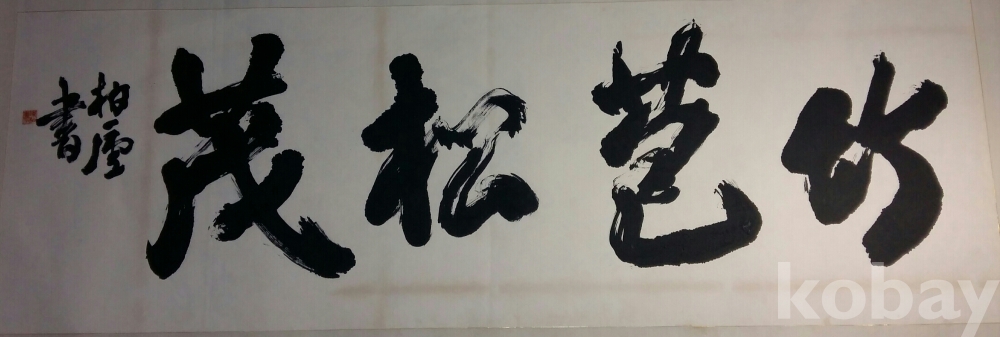 竹苞松茂
柏廬
書
kobay